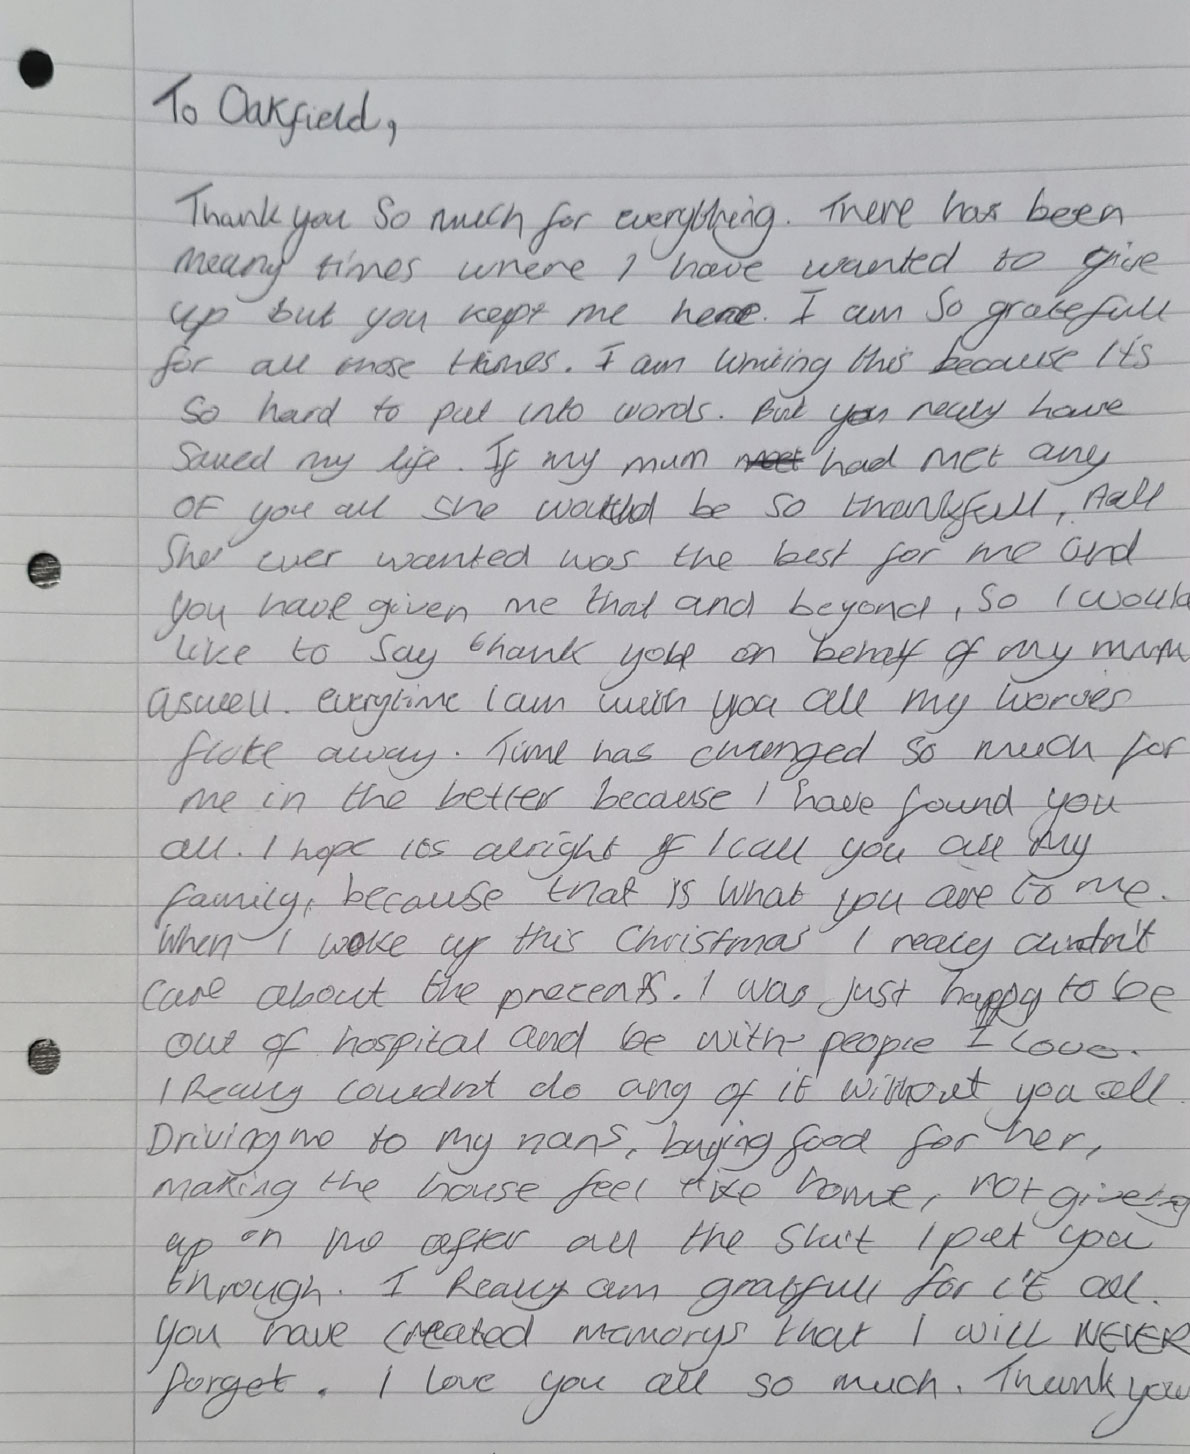 To Oakfield,
Thank you So much for everything. There has been
meany times where I have wanted to give
up but you kept me here. I am So gratefull
for all those times. I am writing this because it's
So hard to put into words. But you really have
Saved my life. If my mum had met any
OF you all She would be so thankfull, All
She ever wanted was the best for me and
you have given me that and beyond, So I would
like to Say thank you on behalf of my mum
aswell. everytime I am with you all my worries
flote away. Time has changed so much for
me in the better because I have found you
all. I hope its alright if I call you all my
family, because that is what you are to me.
When I woke up this Christmas I realy didn't
care about the precents. I was just happy to be
out of hospital and be with people I Love.
I Really couldnt do any of it without you all.
Driving me to my nans, buying food for her,
making the house feel like home, not giveing
up on me after all the Shit I put you
through. I Really am gratfull for it all.
You have created memorys that I will NEVER
forget. I love you all so much. Thank you